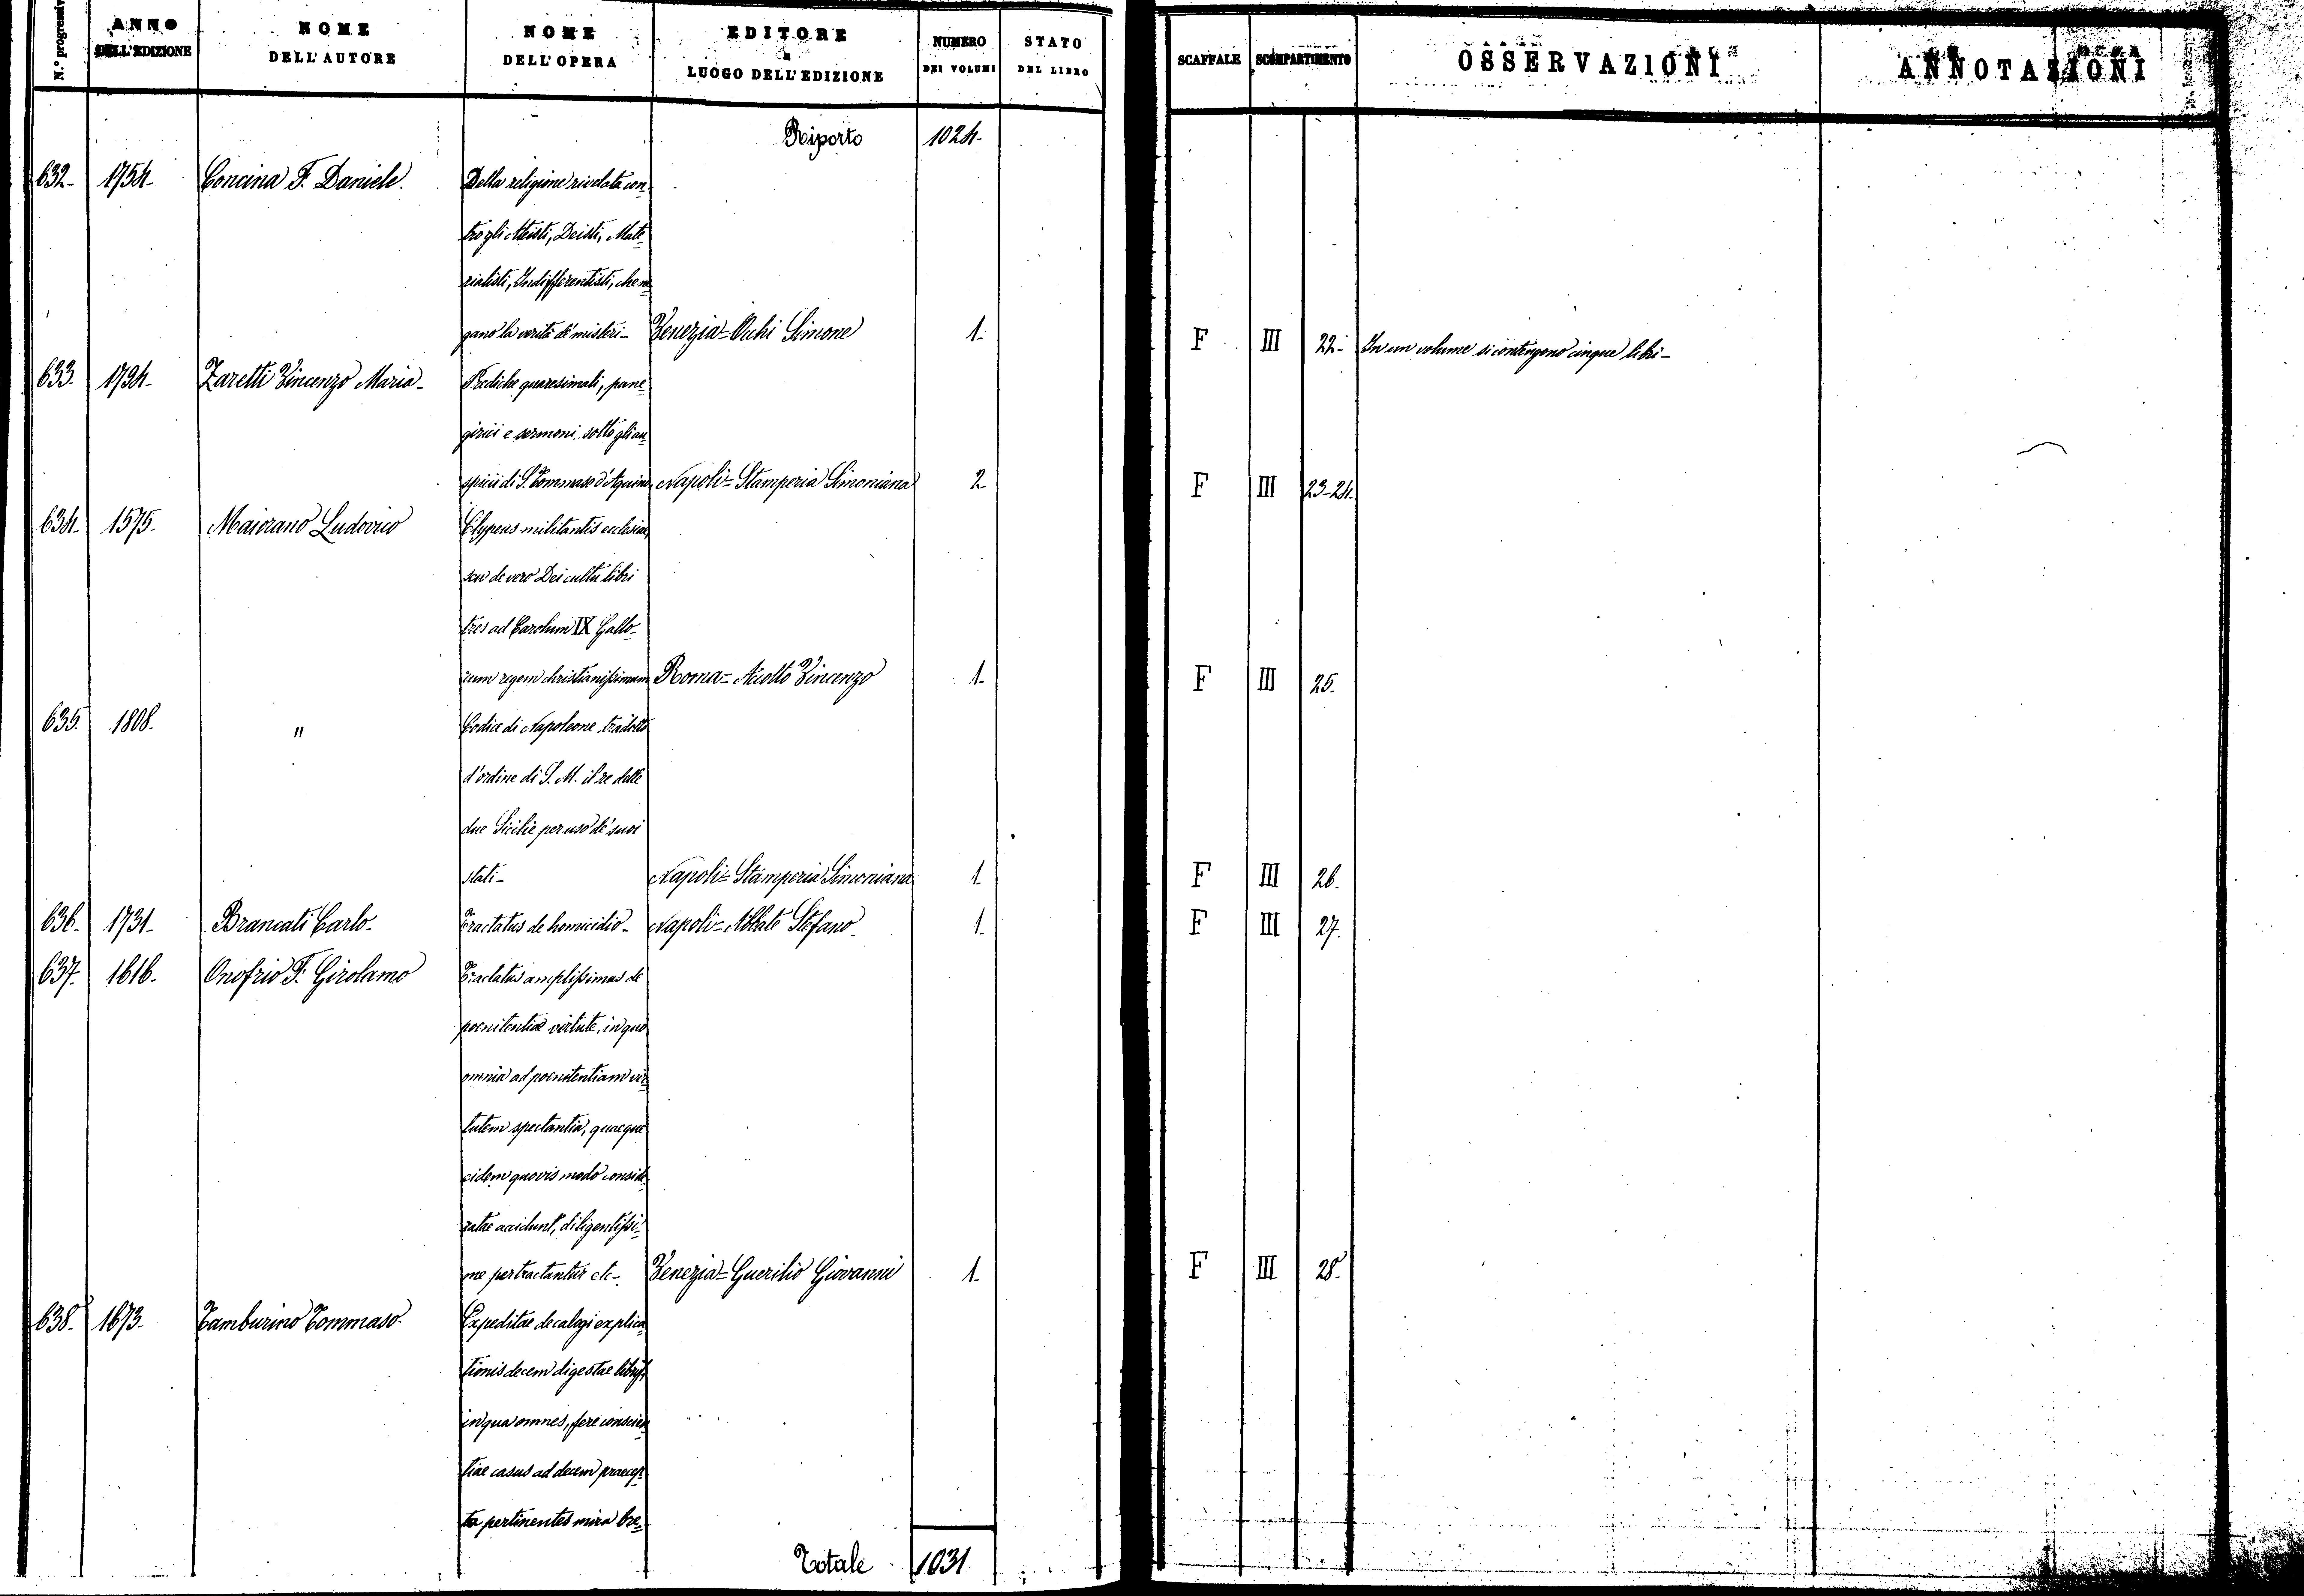 N.º progressiv
ANNO
DELL'EDIZIONE
NOME
DELL'AUTORE
NOME
DELL'OPERA
EDITORE
E
LUOGO DELL'EDIZIONE
NUMERO
DEI VOLUMI
STATO
DEL LIBRO
SCAFFALE
SCOMPARTIMENTO
OSSERVAZIONI
ANNOTAZIONI
Riporto 1024-
632- 1754- Concina F. Daniele. Della religione rivelata con-
tro gli Ateisti, Deisti, Mate-
rialisti, Indifferentisti, che ne-
gano la verità de' misteri- Venezia = Occhi Simone 1- F III 22- In un volume si contengono cinque libri-
633. 1794- Zaretti Vincenzo Maria- Prediche quaresimali, pane-
girici e sermoni sotto gli au-
spicii di S. Tommaso d'Aquino Napoli = Stamperia Simoniana 2- F III 23-24.
634. 1575. Maiorano Ludovico Clypeus militantis ecclesiae,
seu de vero Dei cultu libri
tres ad Carolum IX Gallo-
rum regem christianissimum Roma = Vincenzo 1- F III 25.
635. 1808. " Codice di Napoleone tradotto
d'ordine di S. M. il re delle
due Sicilie per uso de' suoi
stati- Napoli = Stamperia Simoniana 1- F III 26.
636- 1731- Brancati Carlo- Tractatus de homicidio- Napoli = Abbate Stefano- 1- F III 27.
637. 1616. Onofrio F. Girolamo Tractatus amplissimus de
poenitentiae virtute, in quo
omnia ad poenitentiam vir-
tutem spectantia, quaeque
eidem quovis modo conside-
ratae accidunt, diligentissi-
me pertractantur etc-. Venezia = Guerilio Giovanni 1- F III 28.
638. 1673. Tamburino Tommaso. Expeditae decalogi explica-
tionis decem digestae libris,
in qua omnes, fere conscien-
tiae casus ad decem praecep-
ta pertinentes mira bre-
Totale 1031